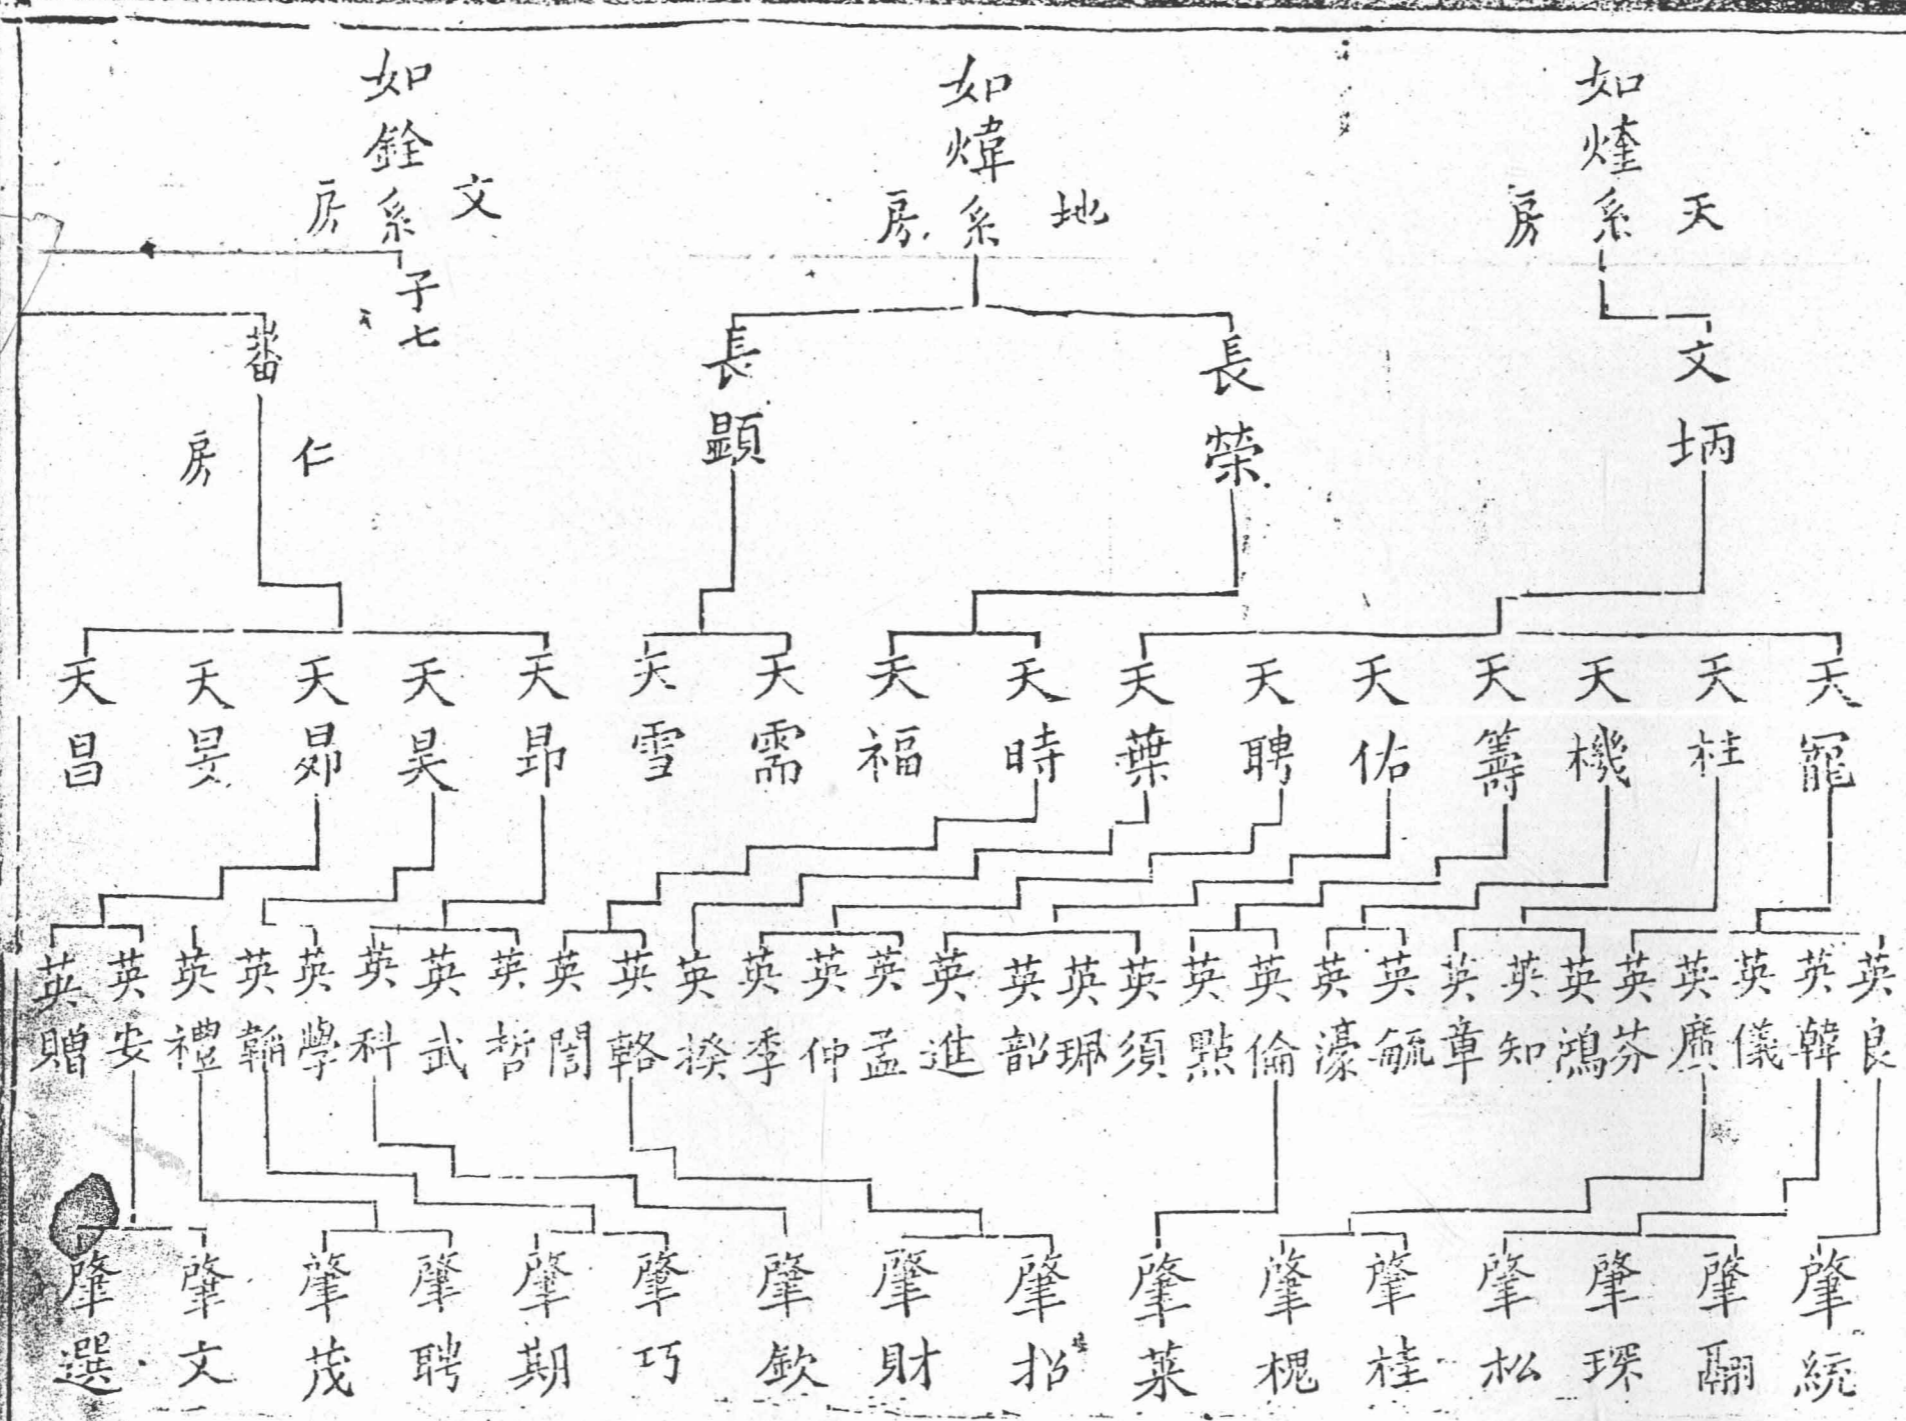 如煃系
天房
文炳
如煒系
地房
長榮
長顯
如銓系
文房
子七
蕃
仁房
天寵
天桂
天機
天籌
天佑
天聘
天葉
天時
天福
天需
天雪
天昂
天昊
天昴
天旻
天昌
英良
英韓
英儀
英廣
英芬
英鴻
英知
英章
英毓
英濠
英倫
英點
英須
英珮
英韶
英進
英孟
英仲
英季
英揆
英輅
英誾
英哲
英武
英科
英學
英韜
英禮
英安
英贈
肇統
肇翮
肇琛
肇松
肇桂
肇槐
肇萊
肇招
肇財
肇欽
肇巧
肇期
肇聘
肇茂
肇文
肇選